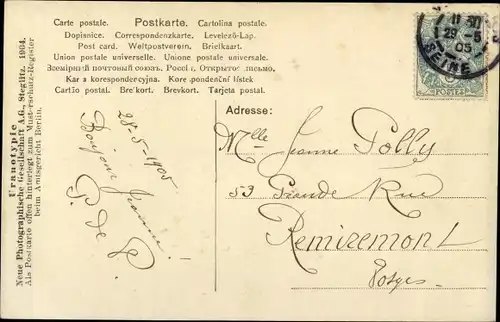 Carte postale. Postkarte. Cartolina postale.
Dopisnice. Correspondenzkarte. Levelező-Lap.
Post card. Weltpostverein. Briefkaart.
Union postale universelle. Unione postale universale.
Всемірный почтовый союзъ. Россія. Открытое письмо.
Kar a korespondencyjna. Korespondenční lístek
Cartão postal. Brevkort. Brevkort. Tarjeta postal.
Uranotypie
Neue Photographische Gesellschaft A.G., Steglitz. 1904.
Als Postkarte offen hinterlegt zum Musterschutz-Register
beim Amtsgericht Berlin.
28-5-1905
Bonjour
P. de P.
29-5
05
SEINE
POSTES
Adresse:
Mlle Jeanne Polly
53 Grande Rue
Remiremont
Vosges